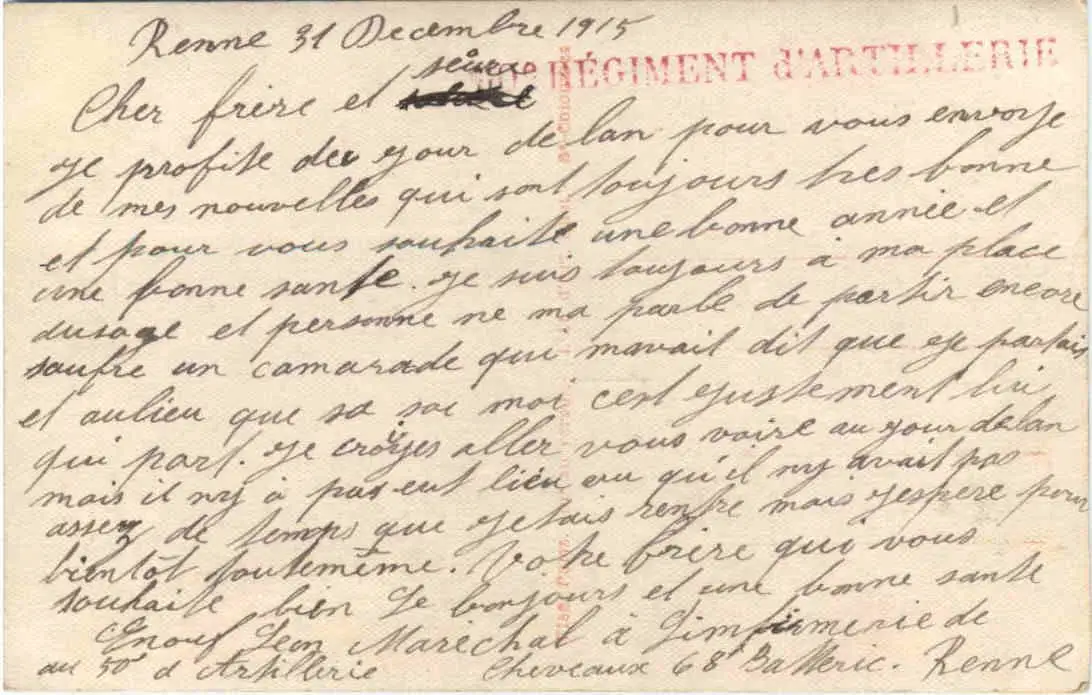 Renne 31 Decembre 1915
RÉGIMENT d'ARTILLERIE
Cher frère et sœur
je profite du jour de lan pour vous envoye
de mes nouvelles qui sont toujours tres bonne
et pour vous souhaite une bonne année et
une bonne sante. je suis toujours à ma place
dusage et personne ne ma parle de partir encore
saufre un camarade qui mavait dit que je partais
et aulieu que sa soi moi cest justement lui
qui part. je croiyes aller vous voire au jour de lan
mais il ny à pas eut lieu vu qu'il ny avait pas
assez de temps que jetais rentre mais jespere pour
bientôt toutemême. Votre frère qui vous
souhaite bien le bonjours et une bonne sante
Enouf Leon Maréchal à Linfirmerie de
au 50e d Artillerie Cheveaux 68e Batterie. Renne